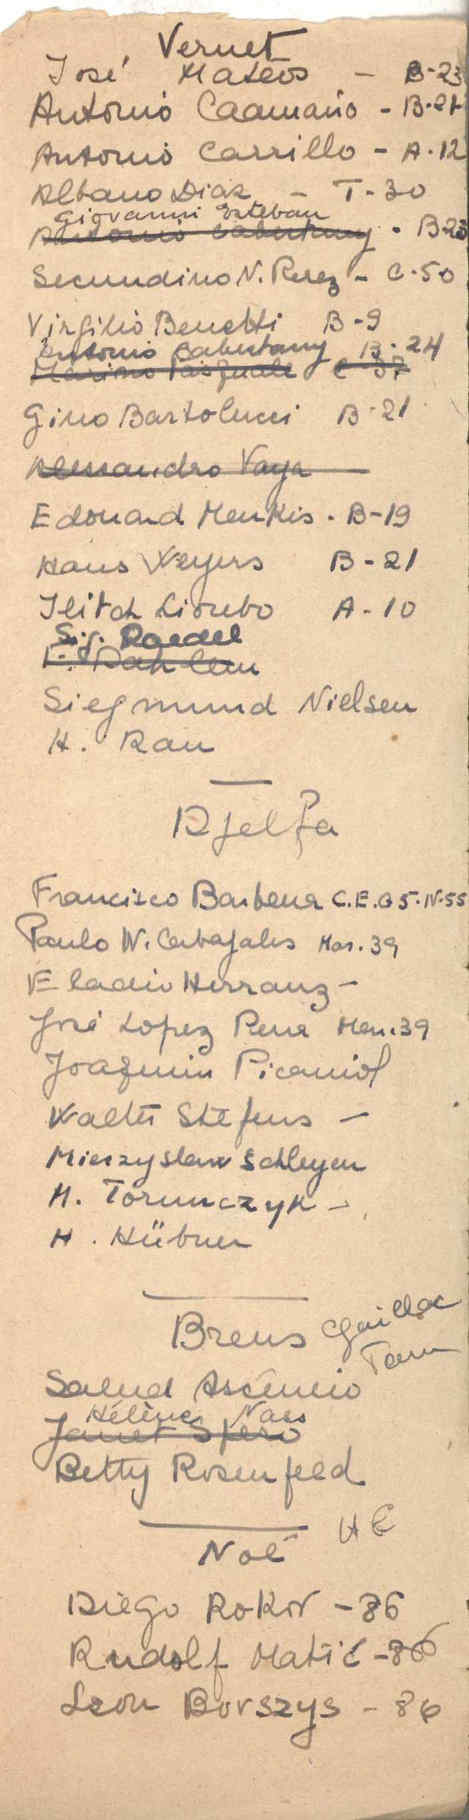 Vernet
José Mateos - B-23
Antonio Caamaño - B-21
Antonio Carrillo - A-12
Albano Diaz - T-30
Giovanni Esteban
Antonio Cabestany - B23
Secundino N. Perez - C-50
Virgilio Benetti B-9
Antonio Cabestany B-24
Mariano Pasquale C 37
Gino Bartolucci B-21
Alessandro Vaya
Edouard Menkis - B-19
Hans Weyers B-21
Ilitch Lioubo A-10
Sig. Raedel
F. Dahlem
Siegmund Nielsen
H. Rau
Djelfa
Francisco Barbena C.E. G5-IV-55
Paulo W. Carbajales Mar. 39
Eladio Herranz -
José Lopez Pena Mar. 39
Joaquin Picaniol
Walter Stefens -
Mieczyslaw Schleyen
H. Torunczyk -
H. Hübner
Brens Gaillac
Tarn
Salud Ascencio
Hélène Naes
Janet Spero
Betty Rosenfeld
Noé HG
Diego Rokov - 86
Rudolf Matić - 86
Leon Borszys - 86